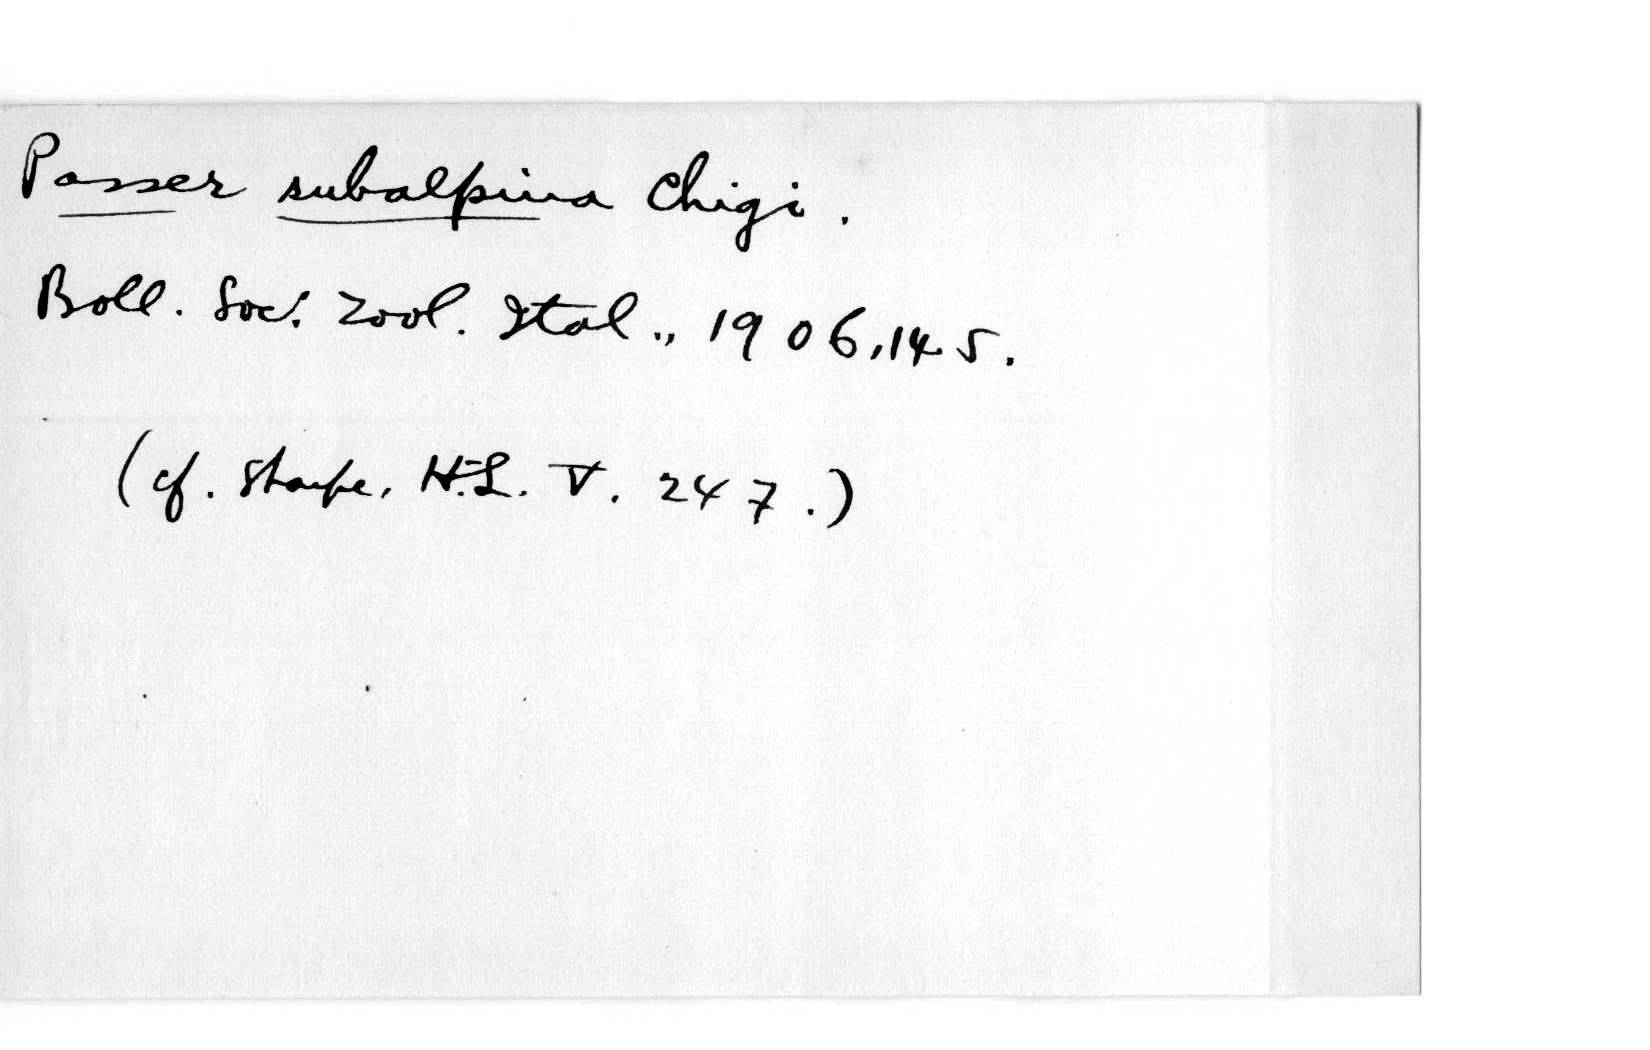 Passer subalpina Chigi.
Boll. Soc. Zool. Ital., 1906, 145.
(cf. Sharpe, H.L. V. 247.)